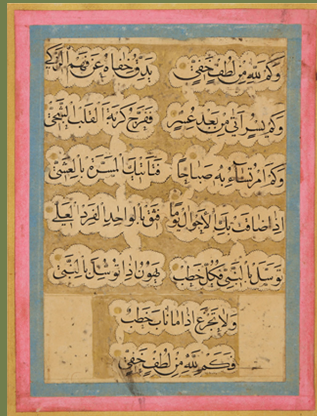 وَكَم لله مِن لطفٍ خفيٍ يدق خفاه عن فهم الذكي
وكم يسرٍ اتى من بعد عسرٍ ففرج كربة القلب الشجي
وكم امرٍ تساء به صباحا فتأتيك المسرة بالعشي
اذا ضاقت بك الاحوال يوما فثق بالواحد الفرد العلي
توسل بالنبي فكل خطب يهون اذا توسل بالنبي
ولا تجزع اذا ما ناب خطب
فكم لله من لطف خفي